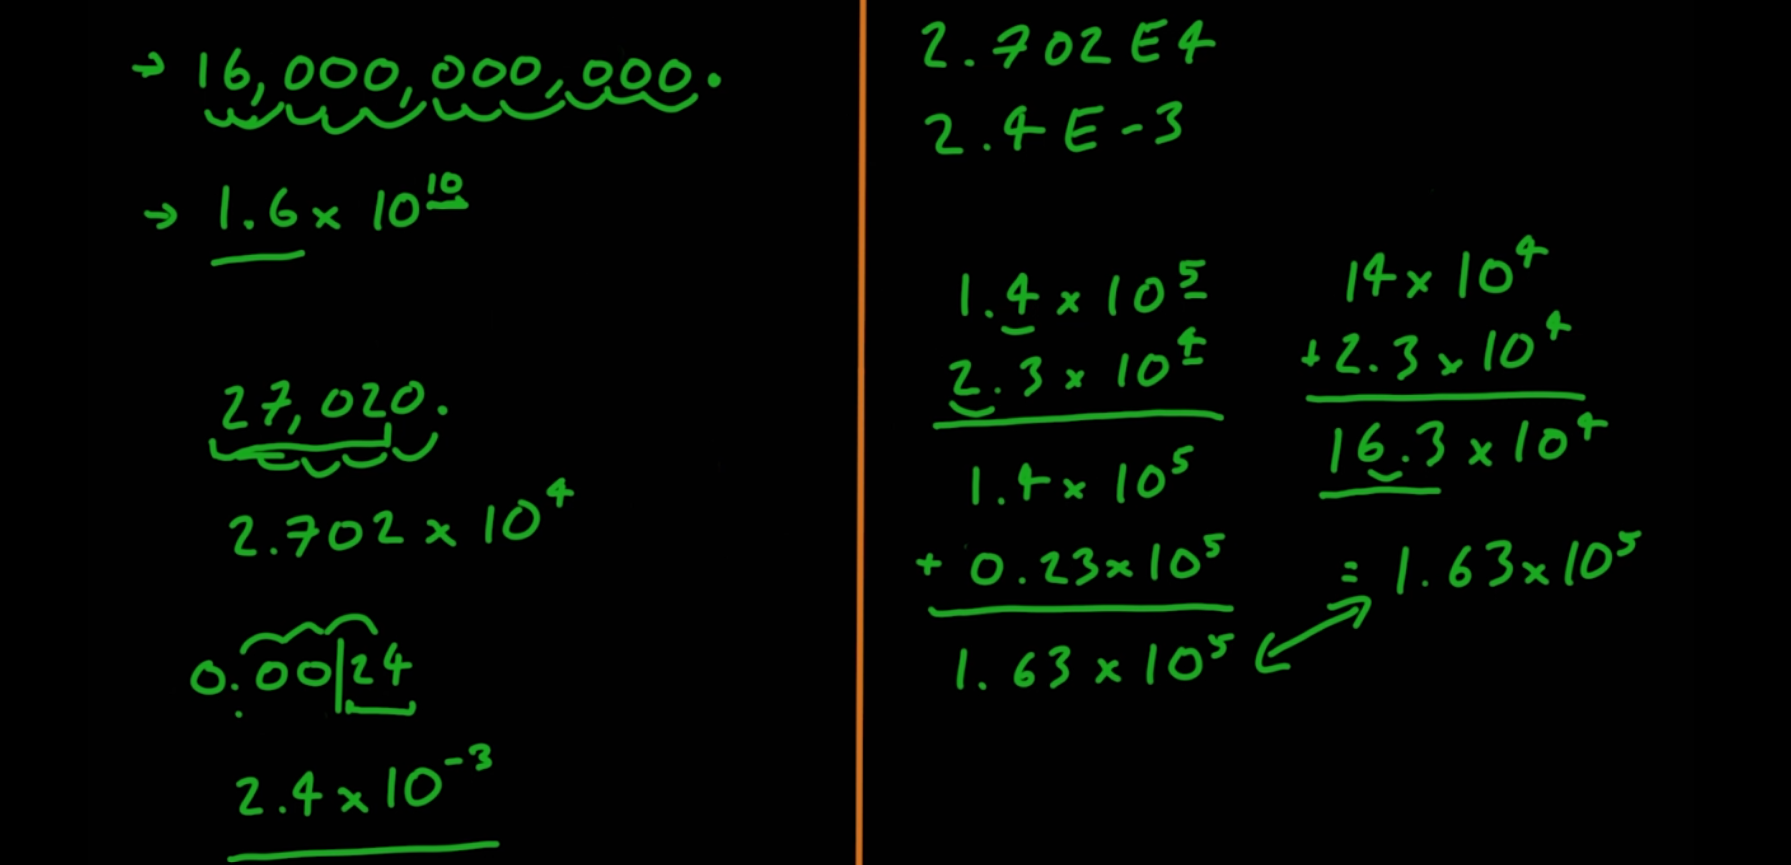 → 16,000,000,000.
→ 1.6 × 10^10
27,020.
2.702 × 10^4
0.00|24
2.4 × 10^-3
2.702 E4
2.4 E -3
1.4 × 10^5
2.3 × 10^4
1.4 × 10^5
+ 0.23 × 10^5
1.63 × 10^5
14 × 10^4
+ 2.3 × 10^4
16.3 × 10^4
= 1.63 × 10^5